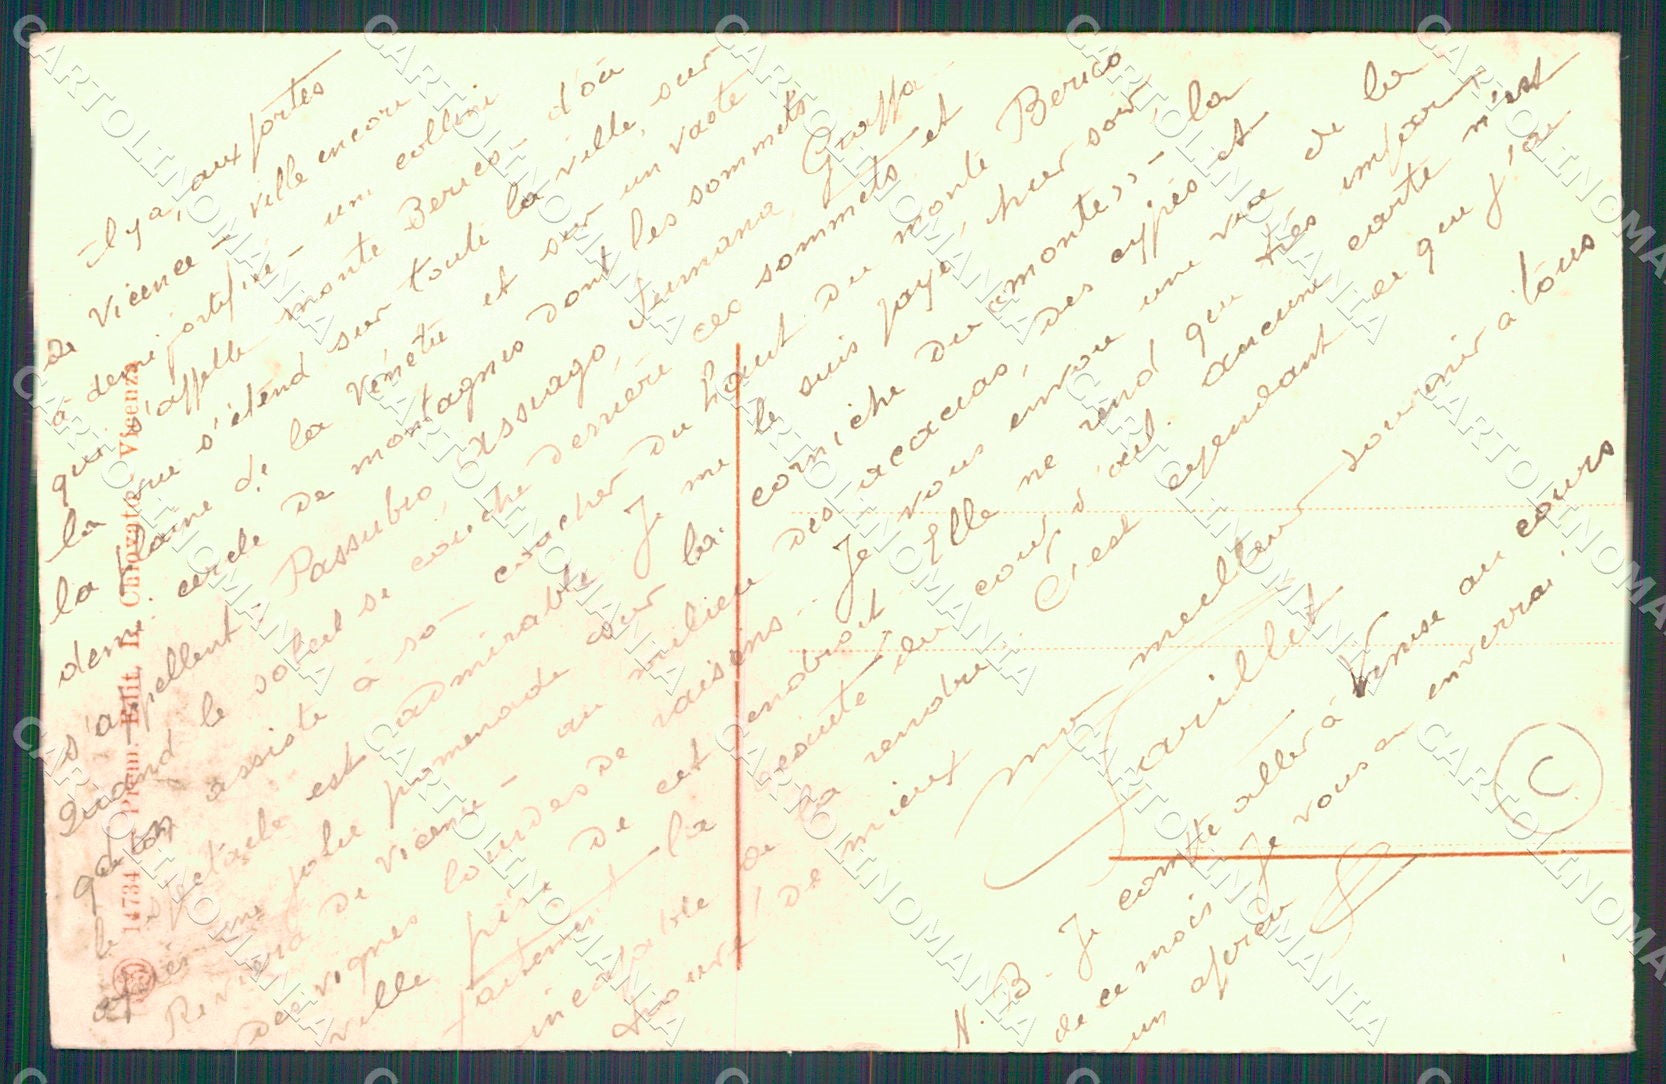 Il y a, aux portes
de Vicence, ville encore
à demi fortifiée - une colline
qui s'appelle monte Berico - d'où
la vue s'étend sur toute la ville, sur
la plaine de la Vénétie et sur un vaste
demi cercle de montagnes dont les sommets
s'appellent, Passubio, Assiago, Grappa
Quand le soleil se couche derrière ces sommets et
qu'on assiste à son coucher du haut du monte Berico
le spectacle est admirable. Je me le suis payé, hier soir,
après une jolie promenade sur la corniche du "monte" - la
Riviera de Vicence - au milieu des acacias, des cyprès et
des vignes lourdes de raisins. Je vous envoie une vue de la
ville prise de cet endroit. Elle ne rend que très imparfaitement la beauté du coup d'œil. aucune carte n'est
incapable de la rendre. C'est cependant ce que j'ai
trouvé de mieux
mon meilleur souvenir à tous
N. B. Je compte aller à Venise au cours
de ce mois. Je vous en enverrai
un aperçu
C
14734 - Prem. Edit. R. Chiovato - Vicenza
CARTOLINOMANIA